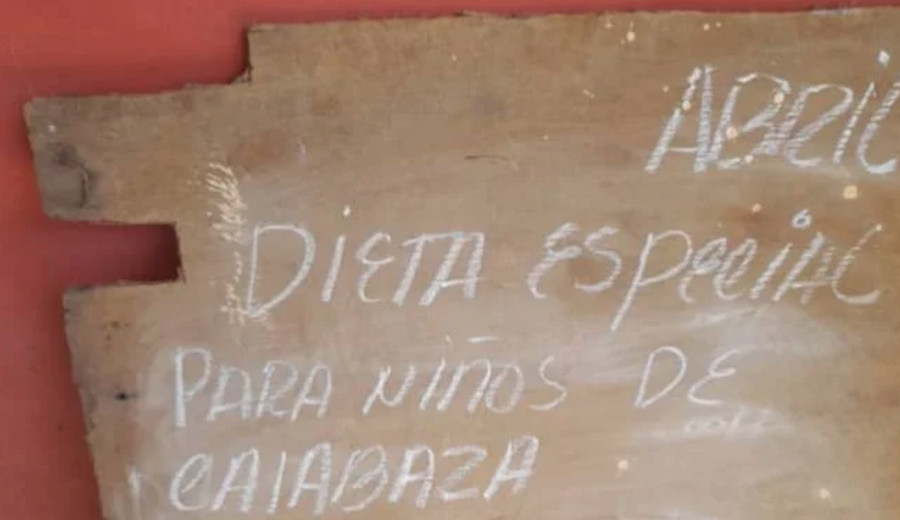 ABRIL
DIETA ESPECIAL
PARA NIÑOS DE
CALABAZA